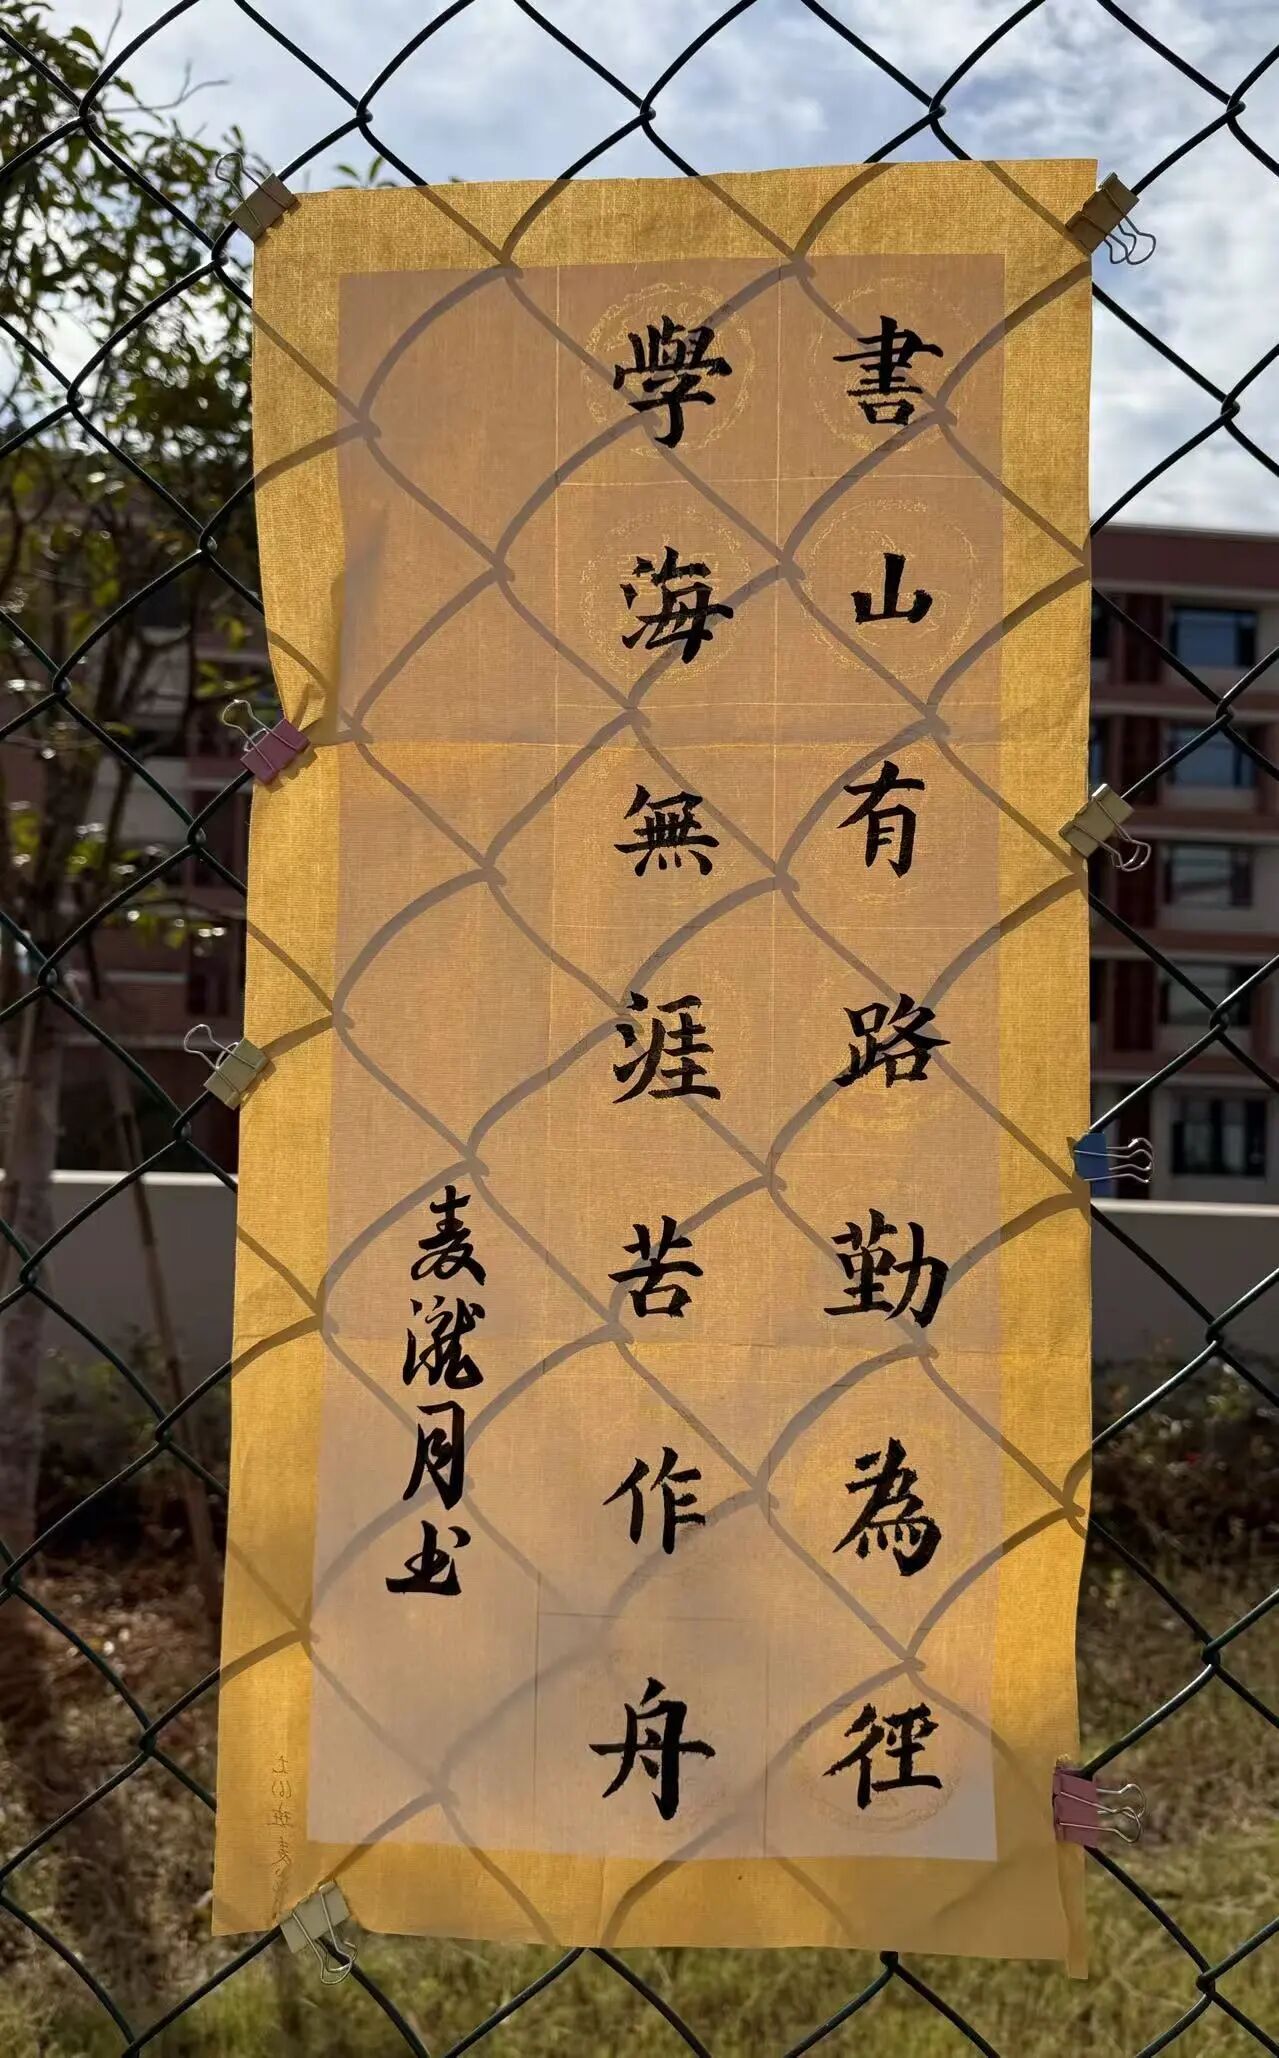 書山有路勤為徑
學海無涯苦作舟
麦瀧月书